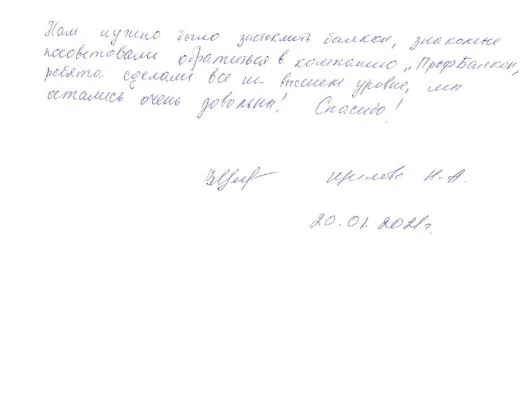 Нам нужно было застеклить балкон, знакомые
посоветовали обратиться в компанию „ПрофБалкон,
ребята сделали все на высшем уровне, мы
остались очень довольны! Спасибо!
Н.А.
20.01.2021г.